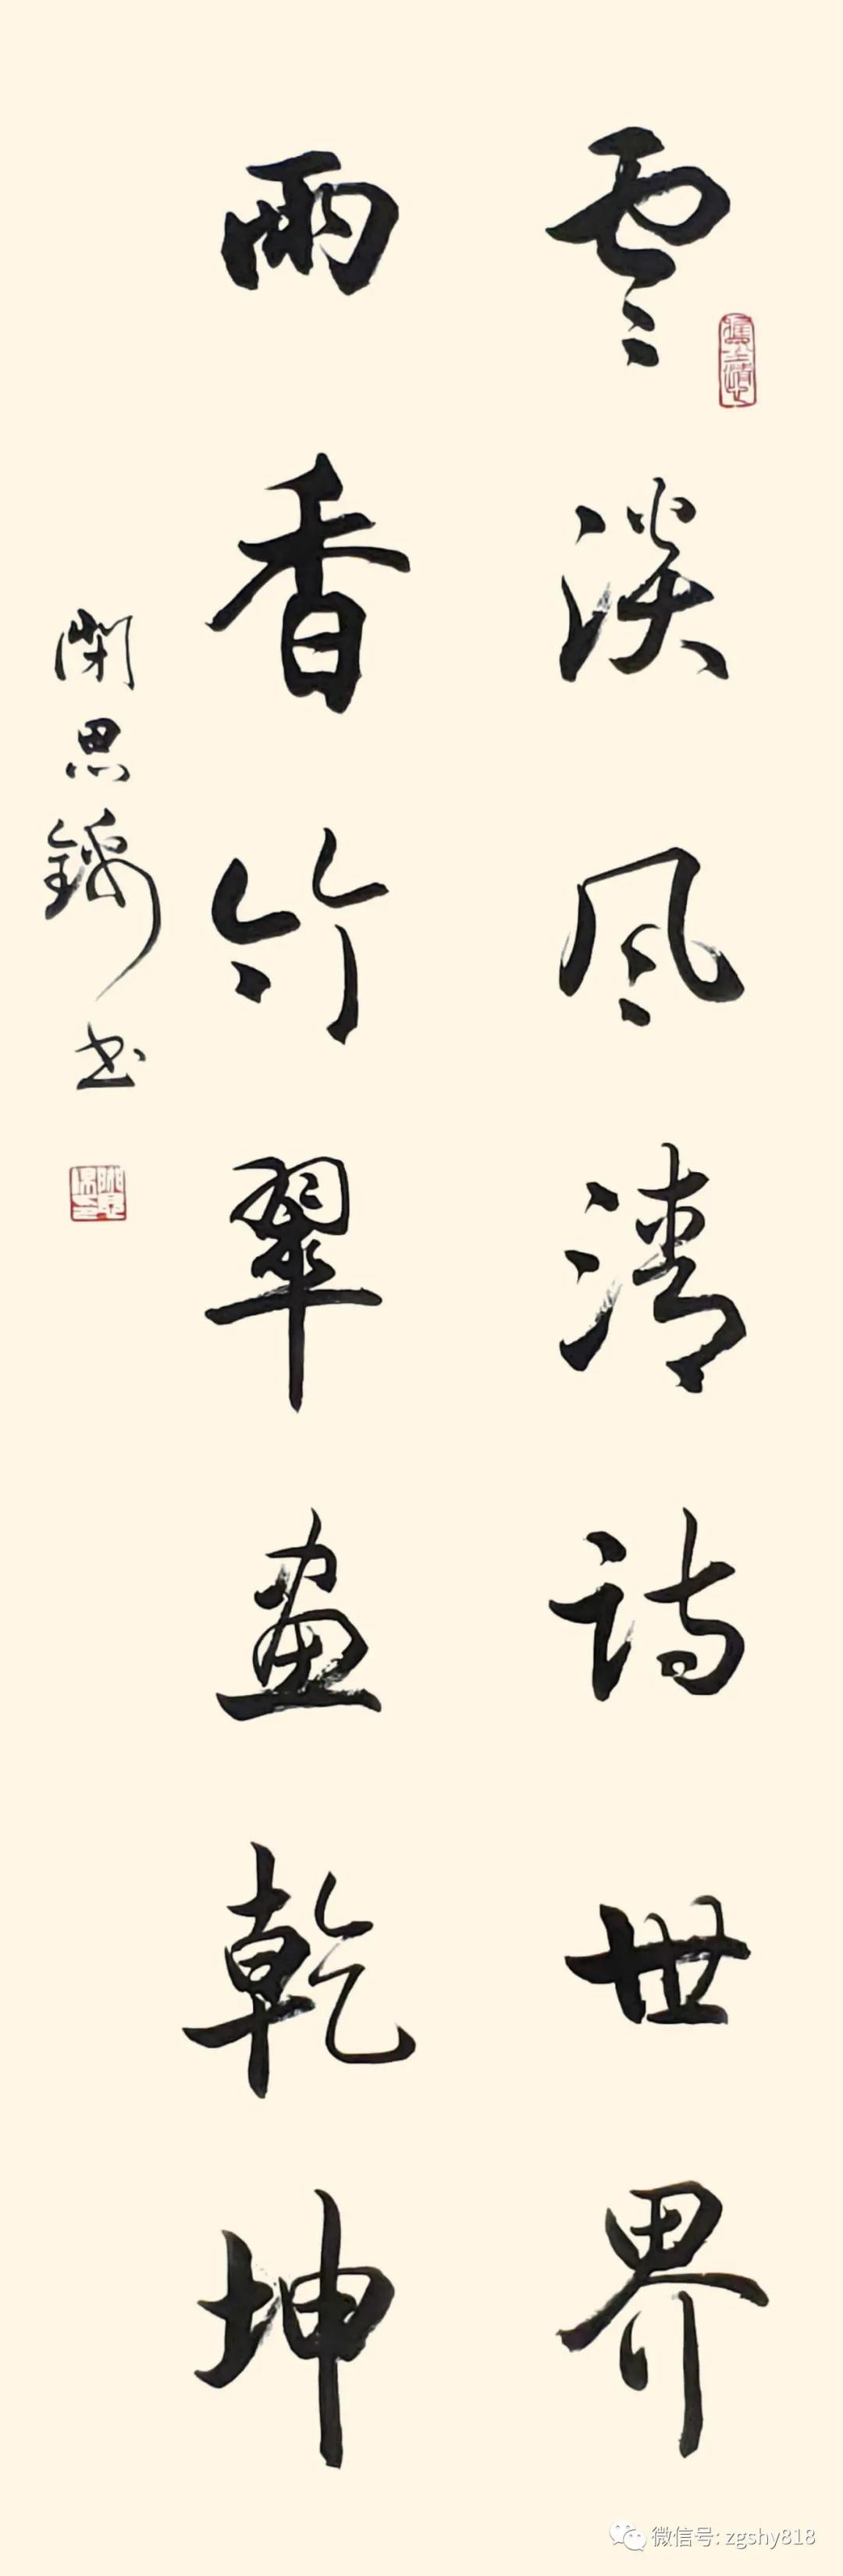 雲淡风清诗世界
雨香竹翠画乾坤
闭思錦书
微信号: zgshy818